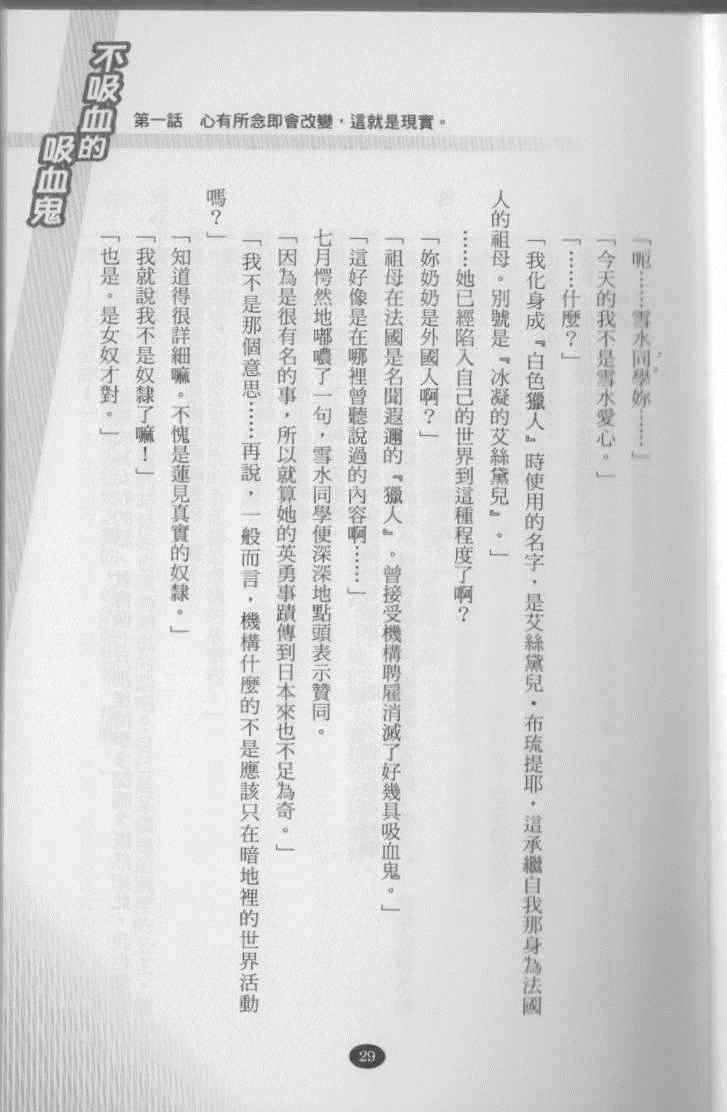 不吸血的
吸血鬼
第一話　心有所念即會改變，這就是現實。
「呃……雪水同學妳……」
「今天的我不是雪水愛心。」
「……什麼？」
「我化身成『白色獵人』時使用的名字，是艾絲黛兒・布琉提耶，這承繼自我那身為法國
人的祖母。別號是『冰凝的艾絲黛兒』。」
……她已經陷入自己的世界到這種程度了啊？
「妳奶奶是外國人啊？」
「祖母在法國是名聞遐邇的『獵人』。曾接受機構聘雇消滅了好幾具吸血鬼。」
「這好像是在哪裡曾聽說過的內容啊……」
七月愕然地嘟噥了一句，雪水同學便深深地點頭表示贊同。
「因為是很有名的事，所以就算她的英勇事蹟傳到日本來也不足為奇。」
「我不是那個意思……再說，一般而言，機構什麼的不是應該只在暗地裡的世界活動
嗎？」
「知道得很詳細嘛。不愧是蓮見真實的奴隸。」
「我就說我不是奴隸了嘛！」
「也是。是女奴才對。」
29